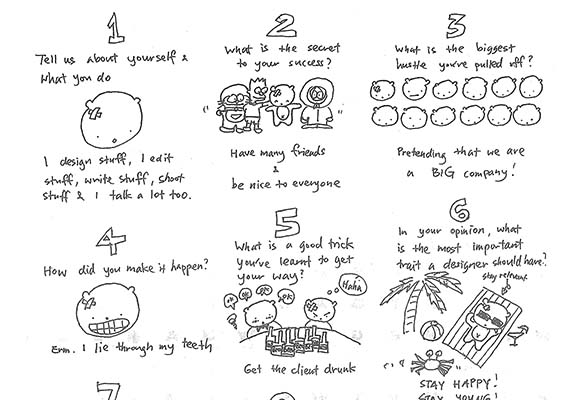 1
Tell us about yourself &
what you do
I design stuff, I edit
stuff, write stuff, shoot
stuff & I talk a lot too.
2
What is the secret
to your success?
Have many friends
&
be nice to everyone
3
What is the biggest
hustle you've pulled off?
Pretending that we are
a BIG company!
4
How did you make it happen?
Erm.. I lie through my teeth
5
What is a good trick
you've learnt to get
your way?
Haha
OK
OK
OK
OK
Get the client drunk
6
In your opinion, what
is the most important
trait a designer should have?
stay relevant
STAY HAPPY!
STAY YOUNG!
7